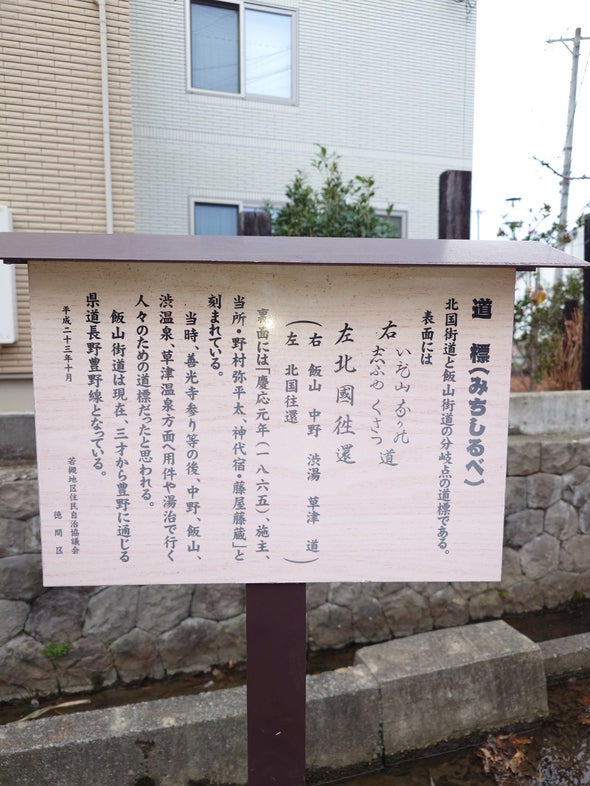 道 標(みちしるべ)
北国街道と飯山街道の分岐点の道標である。
表面には
右 山 道
くさつ
左 北國徃還
(右 飯山 中野 渋湯 草津 道
左 北国往還)
裏面には「慶応元年(一八六五)、施主、
当所・野村弥平太、神代宿・藤屋藤蔵」と
刻まれている。
当時、善光寺参り等の後、中野、飯山、
渋温泉、草津温泉方面へ用件や湯治で行く
人々のための道標だったと思われる。
飯山街道は現在、三才から豊野に通じる
県道長野豊野線となっている。
平成二十三年十月
若槻地区住民自治協議会
徳間区